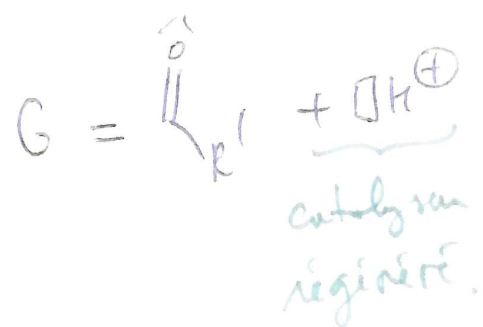 O
G = R' + H⊕
catalyseur
régénéré.